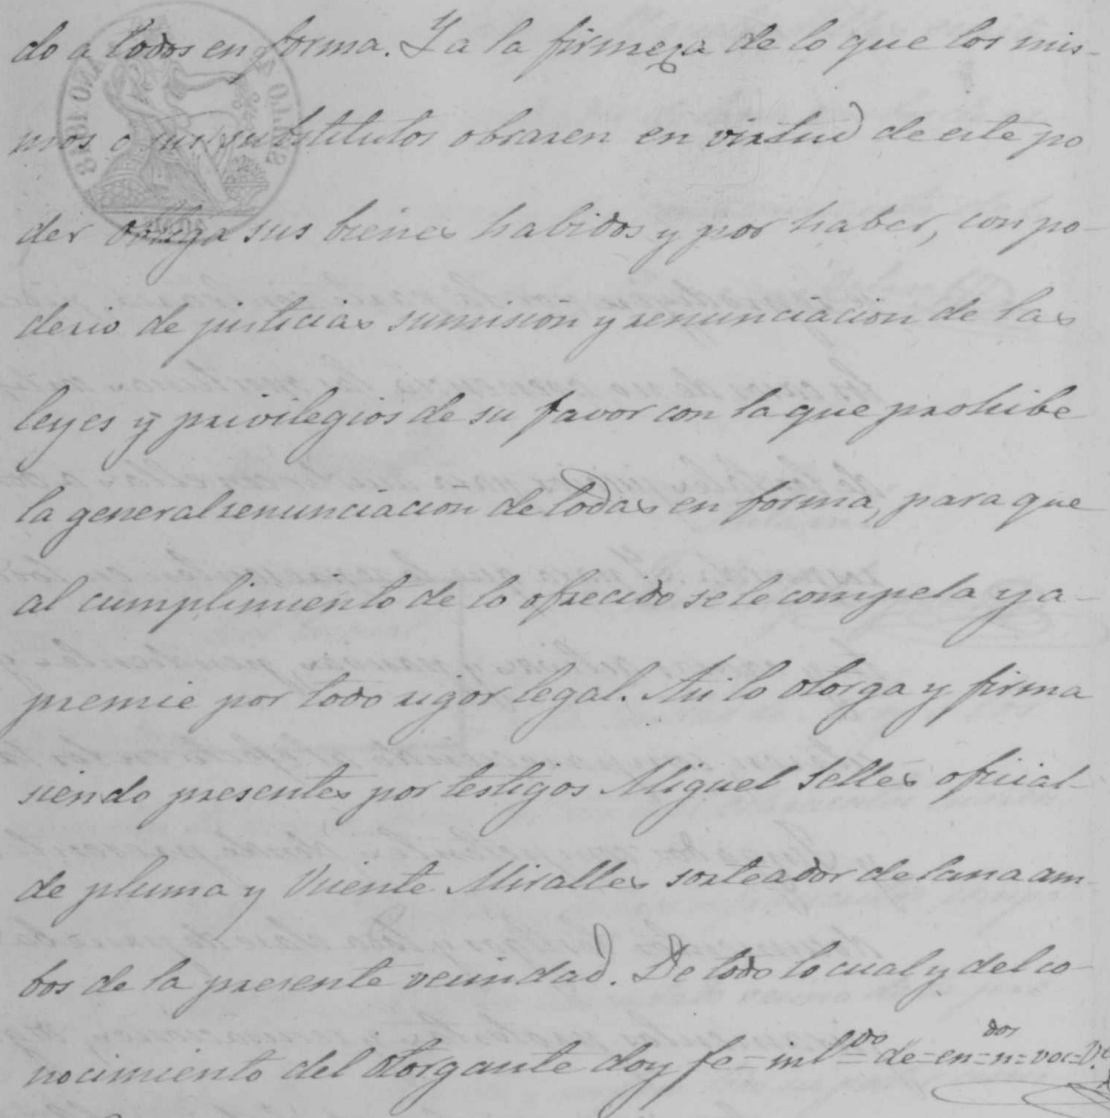 do a todos en forma. Y a la firmeza de lo que los mis-
mos o sus substitutos obraren en virtud de este po
der obliga sus bienes habidos y por haber, con po-
derio de justicias sumision y renunciacion de las
leyes y privilegios de su favor con la que prohibe
la general renunciacion de todas en forma, para que
al cumplimiento de lo ofrecido se le compela y a-
premie por todo rigor legal. Asi lo otorga y firma
siendo presentes por testigos Miguel Selles oficial
de pluma y Vicente Miralles sorteador de lana am-
bos de la presente vecindad. De todo lo cual y del co-
nocimiento del otorgante doy fe = de = en =